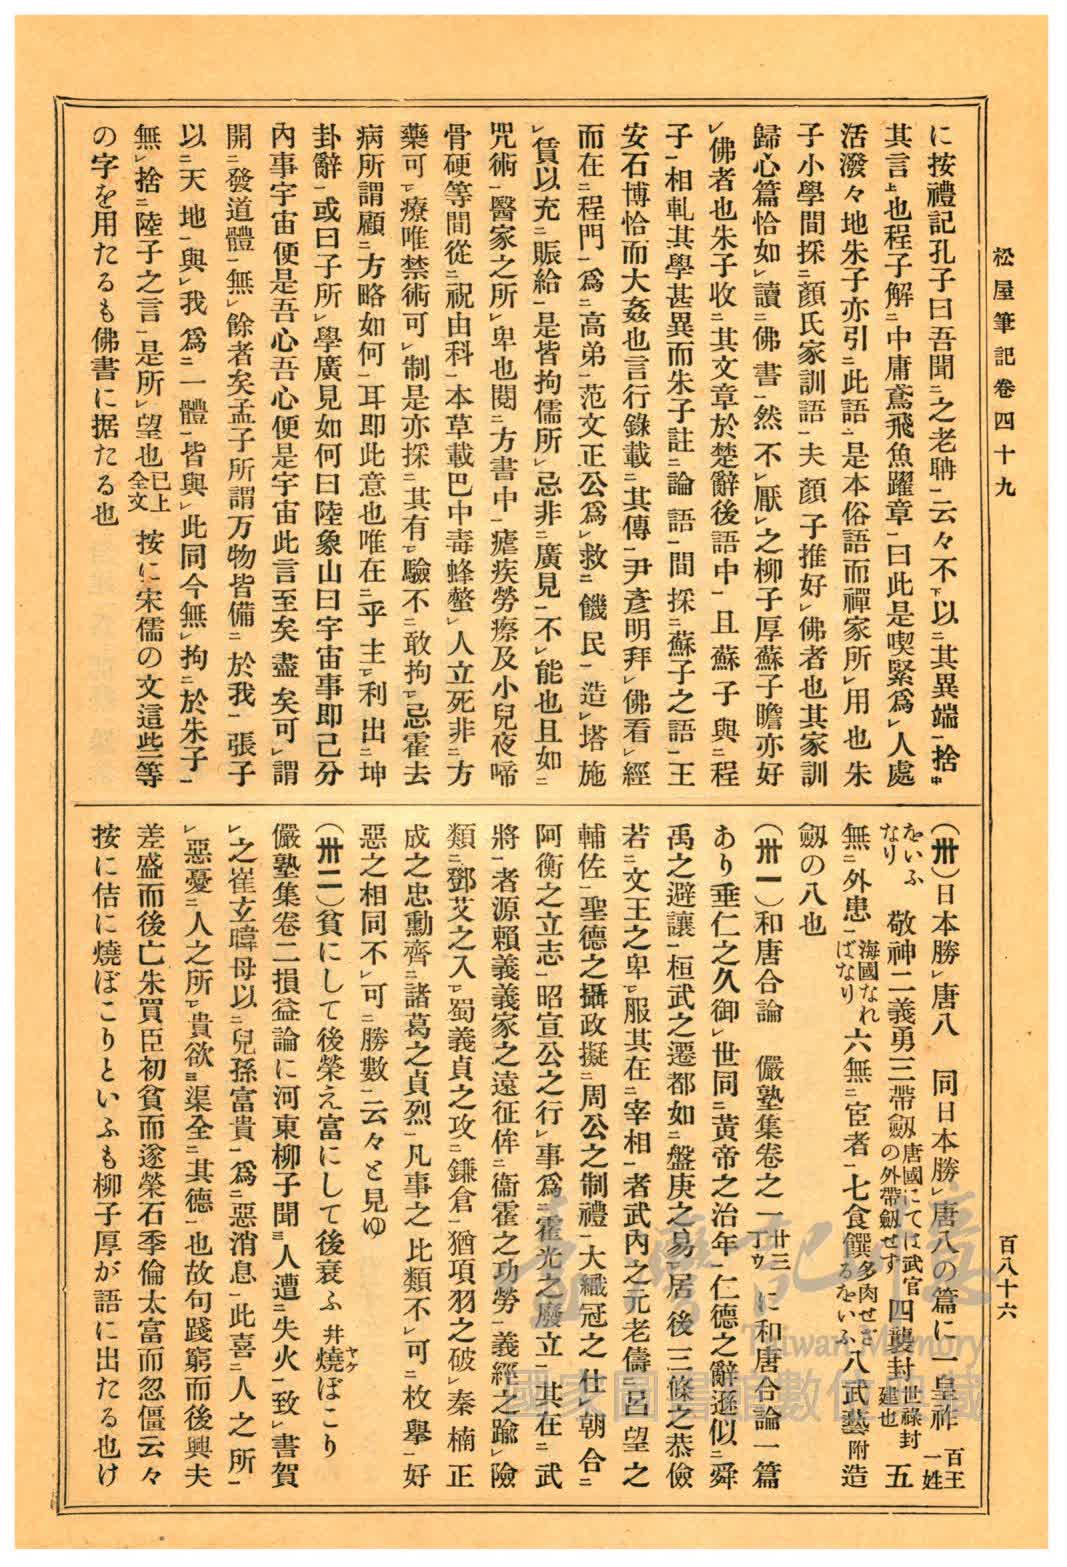 松屋筆記卷四十九
百八十六
に按禮記孔子曰吾聞㆓之老聃㆒云々不㆘以㆓其異端㆒捨㆗
其言㆖也程子解㆓中庸鳶飛魚躍章㆒曰此是喫緊爲㆑人處
活潑々地朱子亦引㆓此語㆒是本俗語而禪家所㆑用也朱
子小學間採㆓顏氏家訓語㆒夫顏子推好㆑佛者也其家訓
歸心篇恰如㆑讀㆓佛書㆒然不㆑厭㆑之柳子厚蘇子瞻亦好
㆑佛者也朱子收㆓其文章於楚辭後語中㆒且蘇子與㆓程
子㆒相軋其學甚異而朱子註㆓論語㆒間採㆓蘇子之語㆒王
安石博恰而大姦也言行錄載㆓其傳㆒尹彥明拜㆑佛看㆑經
而在㆓程門㆒爲㆓高弟㆒范文正公爲㆑救㆓饑民㆒造㆑塔施
㆑賃以充㆓賑給㆒是皆拘儒所㆑忌非㆓廣見㆒不㆑能也且如㆓
咒術㆒醫家之所㆑卑也閱㆓方書中㆒瘧疾勞瘵及小兒夜啼
骨硬等間從㆓祝由科㆒本草載巴中毒蜂螫㆑人立死非㆓方
藥可㆒㆑療唯禁術可㆑制是亦採㆓其有㆒㆑驗不㆓敢拘㆒㆑忌霍去
病所謂顧㆓方略如何㆒耳卽此意也唯在㆓乎主㆒㆑利出㆓坤
卦辭㆒或曰子所㆑學廣見如何曰陸象山曰宇宙事卽己分
內事宇宙便是吾心吾心便是宇宙此言至矣盡矣可㆑謂
開㆓發道體㆒無㆑餘者矣孟子所謂万物皆備㆓於我㆒張子
以㆓天地㆒與㆑我爲㆓一體㆒皆與㆑此同今無㆑拘㆓於朱子㆒
無㆑捨㆓陸子之言㆒是所㆑望也已上全文按に宋儒の文這些等
の字を用たるも佛書に据たる也
(卅)日本勝㆑唐八　同日本勝㆑唐八の篇に一皇祚百王一姓
をいふなり　敬神二義勇三帶劔唐國にては武官の外帶劔せず四襲封世祿封建也五
無㆓外患㆒海國なればなり六無㆓宦者㆒七食饌多肉せざるをいふ八武藝附造
劔の八也
(卅一)和唐合論　儼塾集卷之一卅三丁ウに和唐合論一篇
あり垂仁之久御㆑世同㆓黃帝之治年㆒仁德之辭遜似㆓舜
禹之避讓㆒桓武之遷都如㆓盤庚之易㆒㆑居後三條之恭儉
若㆓文王之卑㆒㆑服其在㆓宰相㆒者武內之元老儔㆓呂望之
輔佐㆒聖德之攝政擬㆓周公之制禮㆒大織冠之仕㆑朝合㆓
阿衡之立志㆒昭宣公之行㆑事爲㆓霍光之廢立㆒其在㆓武
將㆒者源賴義義家之遠征侔㆓衞霍之功勞㆒義經之踰㆑險
類㆓鄧艾之入㆒㆑蜀義貞之攻㆓鎌倉㆒猶項羽之破㆑秦楠正
成之忠勳齊㆓諸葛之貞烈㆒凡事之比類不㆑可㆓枚擧㆒好
惡之相同不㆑可㆓勝數㆒云々と見ゆ
(卅二)貧にして後榮え富にして後衰ふ幷燒ヤケぼこり
儼塾集卷二損益論に河東柳子聞㆘人遭㆓失火㆒致㆑書賀
㆑之崔玄暐母以㆓兒孫富貴㆒爲㆓惡消息㆒此喜㆓人之所㆒
㆑惡憂㆓人之所㆒㆑貴欲㆔渠全㆓其德㆒也故句踐窮而後興夫
差盛而後亡朱買臣初貧而遂榮石季倫太富而忽僵云々
按に佶に燒ぼこりといふも柳子厚が語に出たる也け